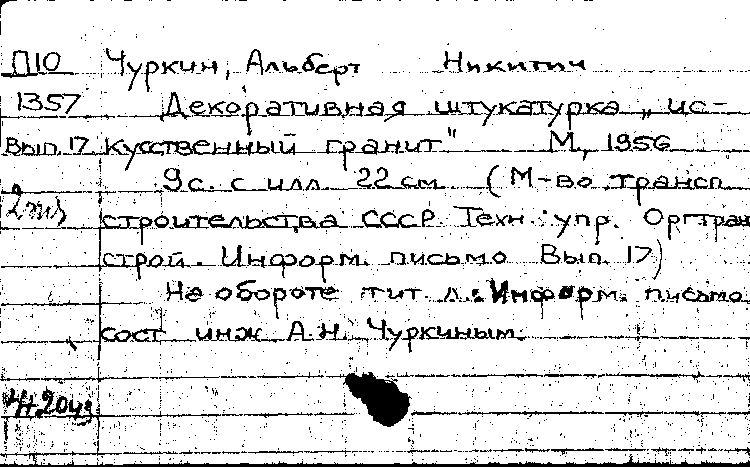 П10 Чуркин, Альберт Никитич
1357 Декоративная штукатурка „ис-
Вып. 17 кусственный гранит" М., 1956
9с. с илл. 22 см (М-во трансп.
строительства СССР. Техн. упр. Оргтранс
строй. Информ. письмо Вып. 17)
На обороте тит. л.: Информ. письмо
сост. инж. А.Н. Чуркиным.